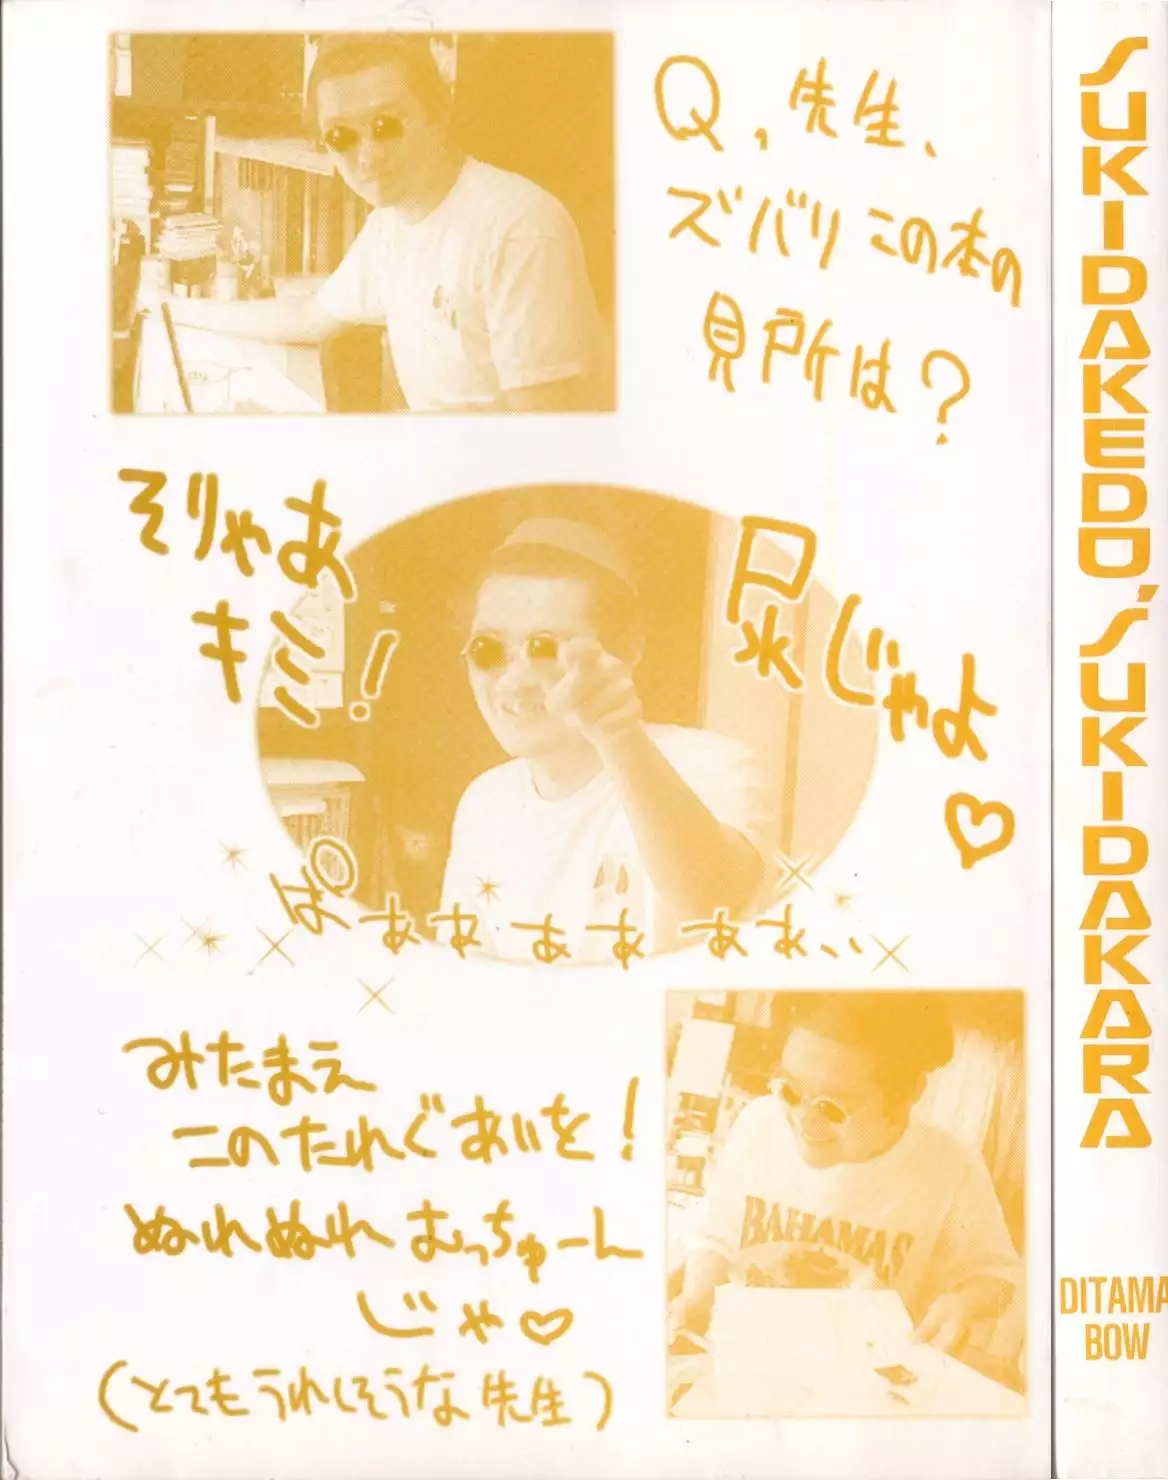 Q,先生、
ズバリこの本の
見所は?
そりゃあ
キミ!
尿じゃよ♡
ぱぁぁぁぁぁぁ、、
みたまえ
このたれぐあいを!
ぬれぬれむっちゅーん
じゃ♡
(とてもうれしそうな先生)
BAHAMAS
SUKIDAKEDO, SUKIDAKARA
DITAMA
BOW